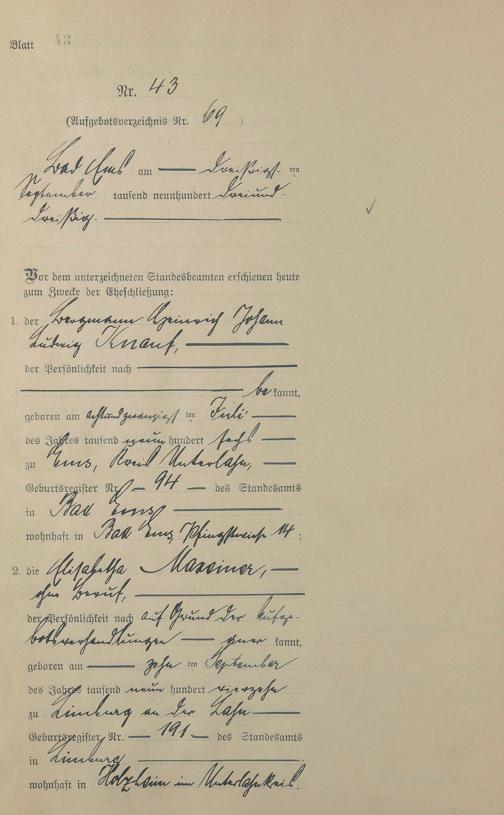 Blatt 43
Nr. 43
(Aufgebotsverzeichnis Nr. 69 )
Bad Ems am — dreißigst- ten
September tausend neunhundert dreiund-
dreißig. —
Vor dem unterzeichneten Standesbeamten erschienen heute
zum Zwecke der Eheschließung:
1. der Bergmann Heinrich Johann
Ludwig Knauf, —
der Persönlichkeit nach —
— be kannt,
geboren am achtundzwanzigst ten Juli —
des Jahres tausend neun hundert sechs —
zu Ems, Kreis Unterlahn, —
Geburtsregister Nr. — 94 — des Standesamts
in Bad Ems —
wohnhaft in Bad Ems 14 ;
2. die Elisabetha —
ohne Beruf, —
der Persönlichkeit nach auf Grund der Aufge-
botsverhandlungen — kannt,
geboren am — zehn ten September
des Jahres tausend neun hundert vierzehn
zu Limburg an der Lahn —
Geburtsregister Nr. — 191 — des Standesamts
in Limburg —
wohnhaft in Holzheim im Unterlahnkreis.